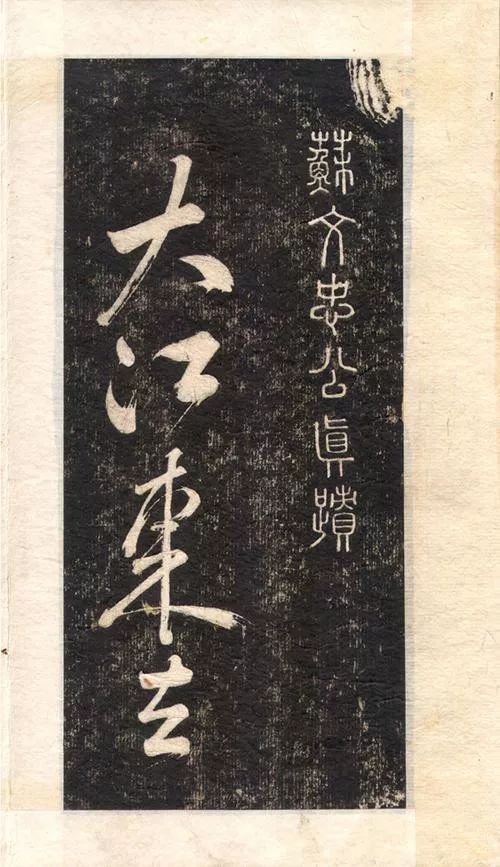 蘇文忠公真蹟
大江東去